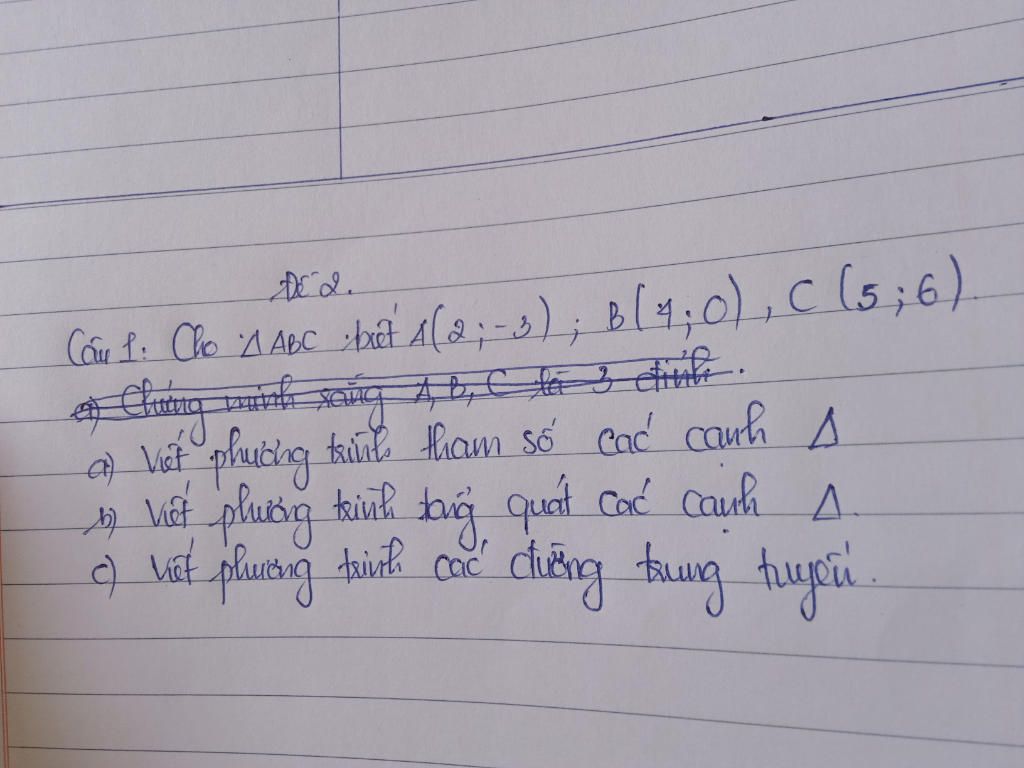 Đề 2.
Câu 1: Cho Δ ABC biết A(2;-3); B(4;0), C(5;6).
a) Chứng minh rằng A, B, C là 3 đỉnh.
a) Viết phương trình tham số các cạnh Δ
b) Viết phương trình tổng quát các cạnh Δ.
c) Viết phương trình các đường trung tuyến.